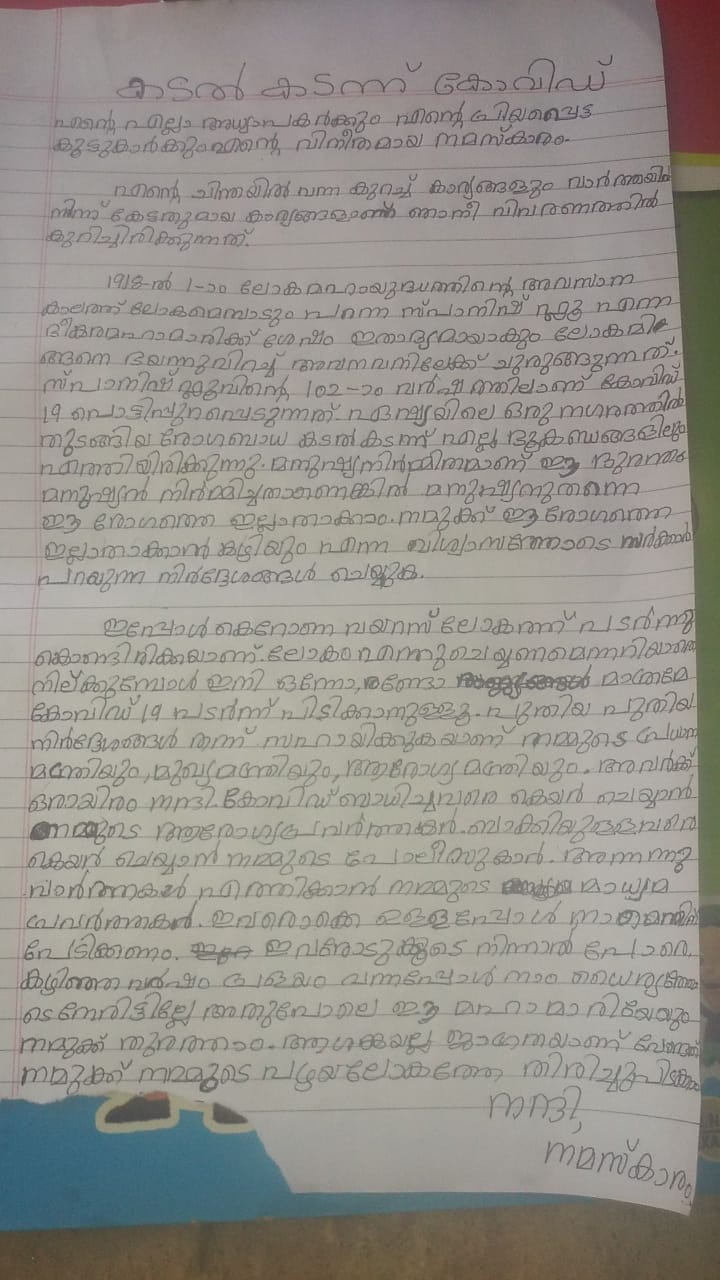 കടൽ കടന്ന് കോവിഡ്
എന്റെ എല്ലാ അധ്യാപകർക്കും എന്റെ പ്രിയപ്പെട്ട
കൂട്ടുകാർക്കും എന്റെ വിനീതമായ നമസ്കാരം.
എന്റെ ചിന്തയിൽ വന്ന കുറച്ച് കാര്യങ്ങളും വാർത്തയിൽ
നിന്ന് കേട്ടതുമായ കാര്യങ്ങളാണ് ഞാനീ വിവരണത്തിൽ
കുറിച്ചിരിക്കുന്നത്.
1918-ൽ 1-ാം ലോകമഹായുദ്ധത്തിന്റെ അവസാന
കാലത്ത് ലോകമെമ്പാടും പടർന്ന സ്പാനിഷ് ഫ്ലൂ എന്ന
ഭീകരമഹാമാരിക്ക് ശേഷം ഇതാദ്യമായാകും ലോകമി
ങ്ങനെ ഭയന്നുവിറച്ച് അവനവനിലേക്ക് ചുരുങ്ങുന്നത്.
സ്പാനിഷ് ഫ്ലൂവിന്റെ 102-ാം വർഷത്തിലാണ് കോവിഡ്
19 പൊട്ടിപ്പുറപ്പെടുന്നത് ഏഷ്യയിലെ ഒരു നഗരത്തിൽ
തുടങ്ങിയ രോഗബാധ കടൽകടന്ന് എല്ലാ ഭൂഖണ്ഡങ്ങളിലും
എത്തിയിരിക്കുന്നു. മനുഷ്യനിർമ്മിതമാണ് ഈ ദുരന്തം
മനുഷ്യൻ നിർമ്മിച്ചതാണെങ്കിൽ മനുഷ്യനുതന്നെ
ഈ രോഗത്തെ ഇല്ലാതാക്കാം. നമുക്ക് ഈ രോഗത്തെ
ഇല്ലാതാക്കാൻ കഴിയും എന്ന വിശ്വാസത്തോടെ സർക്കാർ
പറയുന്ന നിർദ്ദേശങ്ങൾ ചെയ്യുക.
ഇപ്പോൾ കൊറോണ വയറസ് ലോകത്ത് പടർന്നു
കൊണ്ടിരിക്കയാണ്. ലോകം എന്തുചെയ്യണമെന്നറിയാതെ
നില്ക്കുമ്പോൾ ഇനി ഒന്നോ, രണ്ടോ മാത്രമേ
കോവിഡ് 19 പടർന്ന് പിടിക്കാനുള്ളൂ. പുതിയ പുതിയ
നിർദ്ദേശങ്ങൾ തന്ന് സഹായിക്കുകയാണ് നമ്മുടെ പ്രധാന
മന്ത്രിയും, മുഖ്യമന്ത്രിയും, ആരോഗ്യമന്ത്രിയും. അവർക്ക്
ഒരായിരം നന്ദി. കോവിഡ് ബാധിച്ചവരെ കെയർ ചെയ്യാൻ
നമ്മുടെ ആരോഗ്യപ്രവർത്തകർ. ബാക്കിയുള്ളവരെ
കെയർ ചെയ്യാൻ നമ്മുടെ പോലീസുകാർ. അന്നന്നു
വാർത്തകൾ എത്തിക്കാൻ നമ്മുടെ മാധ്യമ
പ്രവർത്തകർ. ഇവരൊക്കെ ഉള്ളപ്പോൾ നാമെന്തിന്
പേടിക്കണം. ഇവരോടുകൂടെ നിന്നാൽ പോരെ.
കഴിഞ്ഞ വർഷം പ്രളയം വന്നപ്പോൾ നാം ധൈര്യത്തോ
ടെ നേരിട്ടില്ലേ അതുപോലെ ഈ മഹാമാരിയേയും
നമുക്ക് തുരത്താം. ആശങ്കയല്ല ജാഗ്രതയാണ് വേണ്ടത്
നമുക്ക് നമ്മുടെ പഴയലോകത്തേ തിരിച്ചുപിടിക്കാം
നന്ദി,
നമസ്കാരം